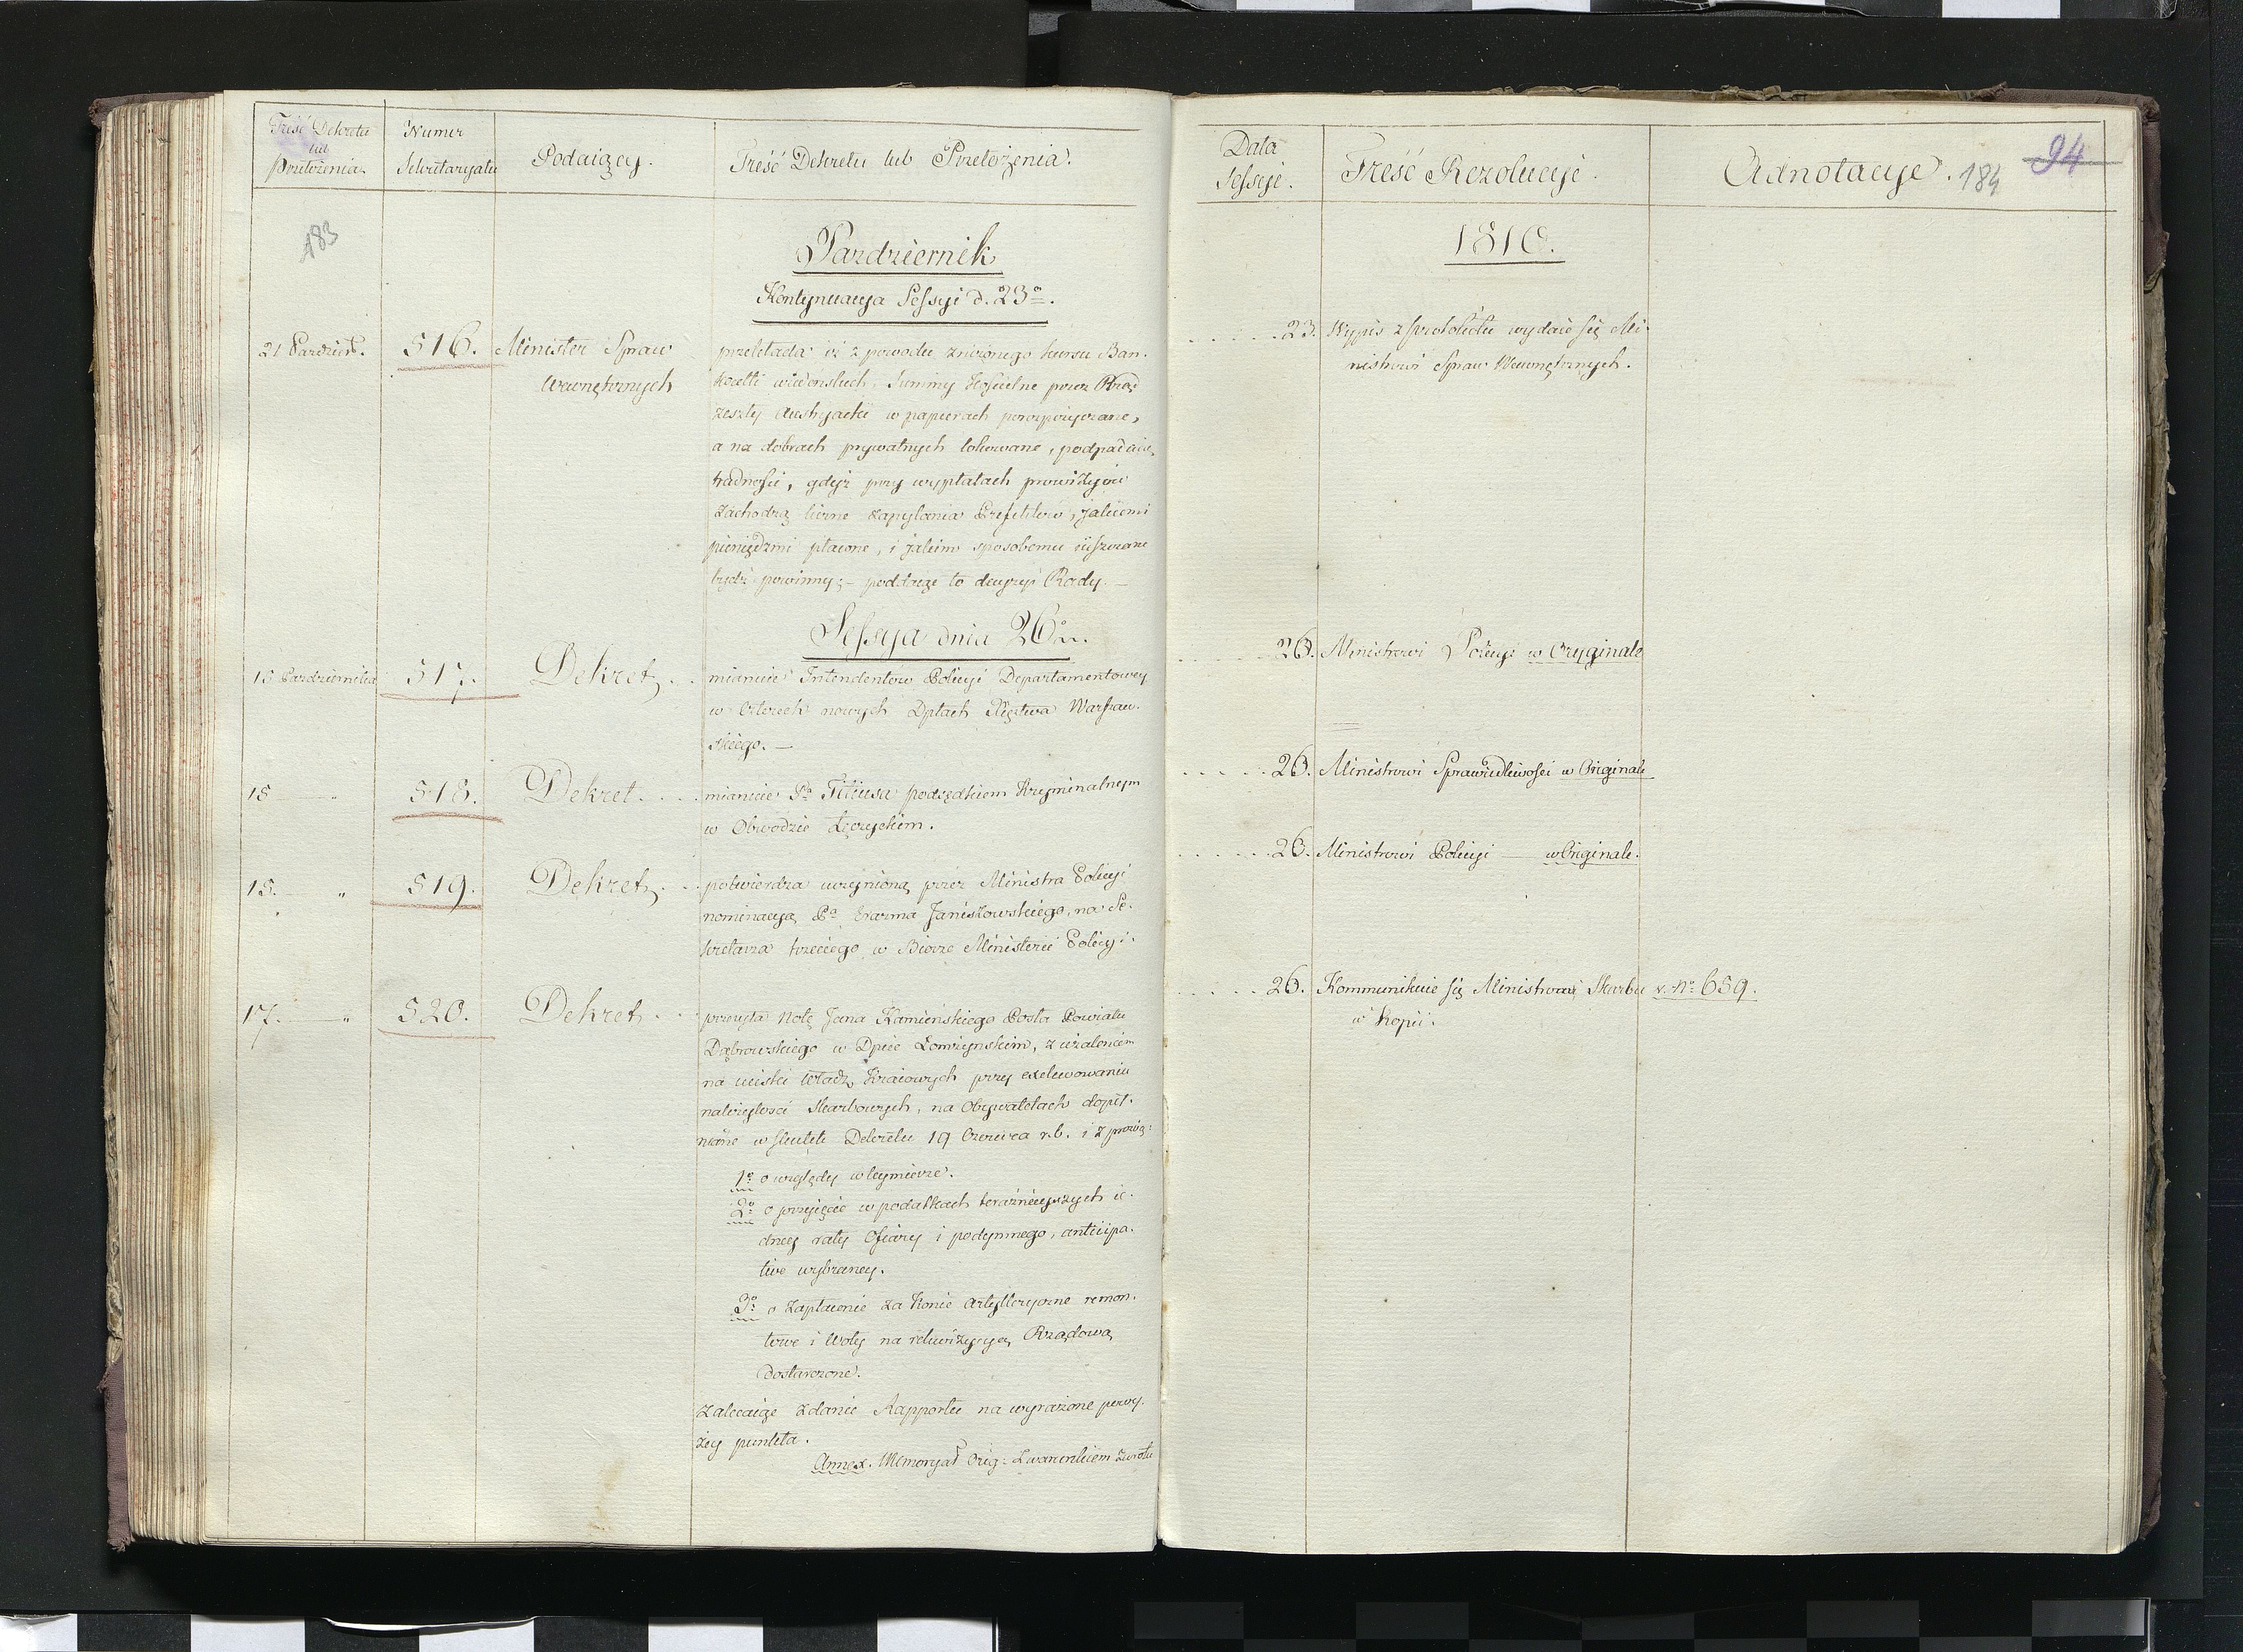 Treść Dekretu
lub
Przełożenia.
Numer
Sekretaryatu
Podaiący.
Treść Dekretu lub Przełożenia.
183
Pazdziernik
Kontynuacya Sessyi d. 23º.
21 Pazdzier.
516.
Minister Spraw
Wewnętrznych
przekłada iż z powodu zniżonego kursu Ban-
kocetli wiedenskich, Summy Kościelne przez Rząd
zeszły Austryacki w papierach porozpożyczane,
a na dobrach prywatnych lokowane, podpadaią
trudności, gdyż przy wypłatach prowizyów
zachodzą liczne zapytania Prefektów, jakiemi
pieniędzmi płacone, i jakim sposobem uiszczane
bydź powinny; - poddaje to decyzyi Rady. -
Sessya dnia 26º.
15 Pazdziernika
517.
Dekret
mianuie Intendentow Policyi Departamentowey
w Czterech nowych Dptach Xięstwa Warszaw-
skiego. -
15 "
518.
Dekret
mianuie Pª Titiusa podsędkiem Kryminalnym
w Obwodzie Łęczyckim.
15. "
519.
Dekret
potwierdza uczynioną przez Ministra Policyi
nominacyą Pª Erazma Janiszowskiego, na Se-
kretarza trzeciego w Biorze Ministerii Policyi.
17. "
520.
Dekret
przesyła Notę Jana Kamieńskiego Posła Powiatu
Dąbrowskiego w Dpcie Łomżynskim, z użaleniem
na uciski Władz Kraiowych przy exekwowaniu
należytości Skarbowych, na Obywatelach dopeł-
niane w skutek Dekretu 19 Czerwca r.b. i z prozbą:
1º o względy w teymierze.
2º o przyjęcie w podatkach teraźnieyszych ie-
dney raty Ofiary i podymnego, anticipa-
tive wybraney.
3º o zapłacenie za Konie artylleryczne remon-
towe i Woły na rekwizycyą Rządową
dostarczone.
Zalecaiąc zdanie Rapportu na wyrażone powy-
żey punkta.
Annex. Memoryał Orig: z warunkiem zwrotu
Data
Sessyi.
Treść Rezolucyi.
Adnotacye.
184
94
1810.
23. Wypis z protokółu wydaie się Mi-
nistrowi Spraw Wewnętrznych.
26. Ministrowi Policyi w Oryginale
26. Ministrowi Sprawiedliwości w Originale
26. Ministrowi Policyi — w Originale.
26. Kommunikuie się Ministrowi Skarbu v. Nº 659.
w Kopii.